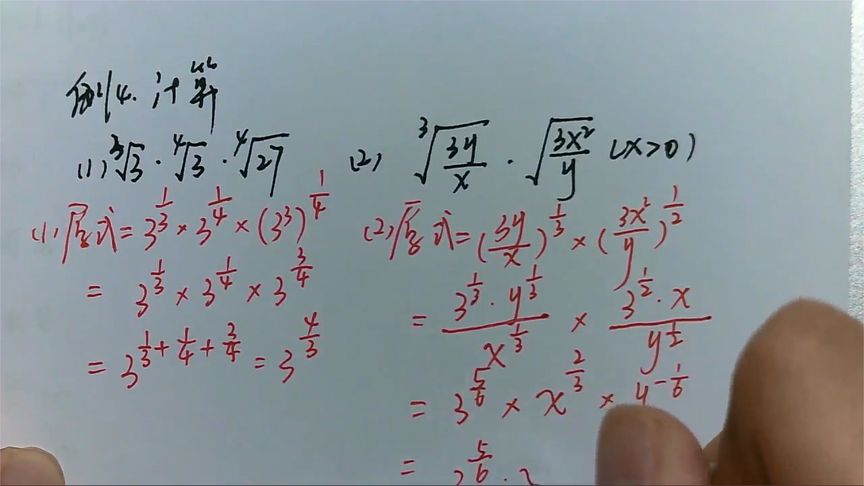 例4. 计算
(1) ∛3 · ∜3 · ∜27
(2) ∛(3y/x) · √(3x²/y) (x>0)
(1) 原式 = 3^(1/3) × 3^(1/4) × (3³)^(1/4)
= 3^(1/3) × 3^(1/4) × 3^(3/4)
= 3^(1/3+1/4+3/4) = 3^(4/3)
(2) 原式 = (3y/x)^(1/3) × (3x²/y)^(1/2)
= (3^(1/3) · y^(1/3))/x^(1/3) × (3^(1/2) · x)/y^(1/2)
= 3^(5/6) × x^(2/3) × y^(-1/6)
= 3^(5/6) ·